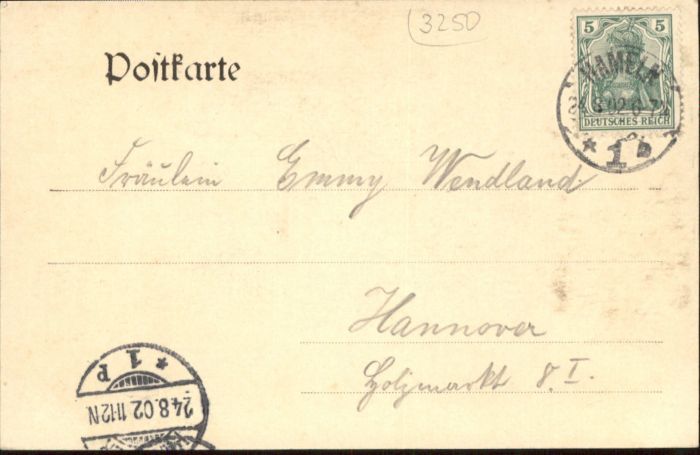 3250
Postkarte
5 5
DEUTSCHES REICH
HAMELN
24.8.02.6-7
* 1 b
Fräulein Emmy Wendland
Hannover
Holzmarkt 8.I.
* 1 P
24.8.02.11-12N